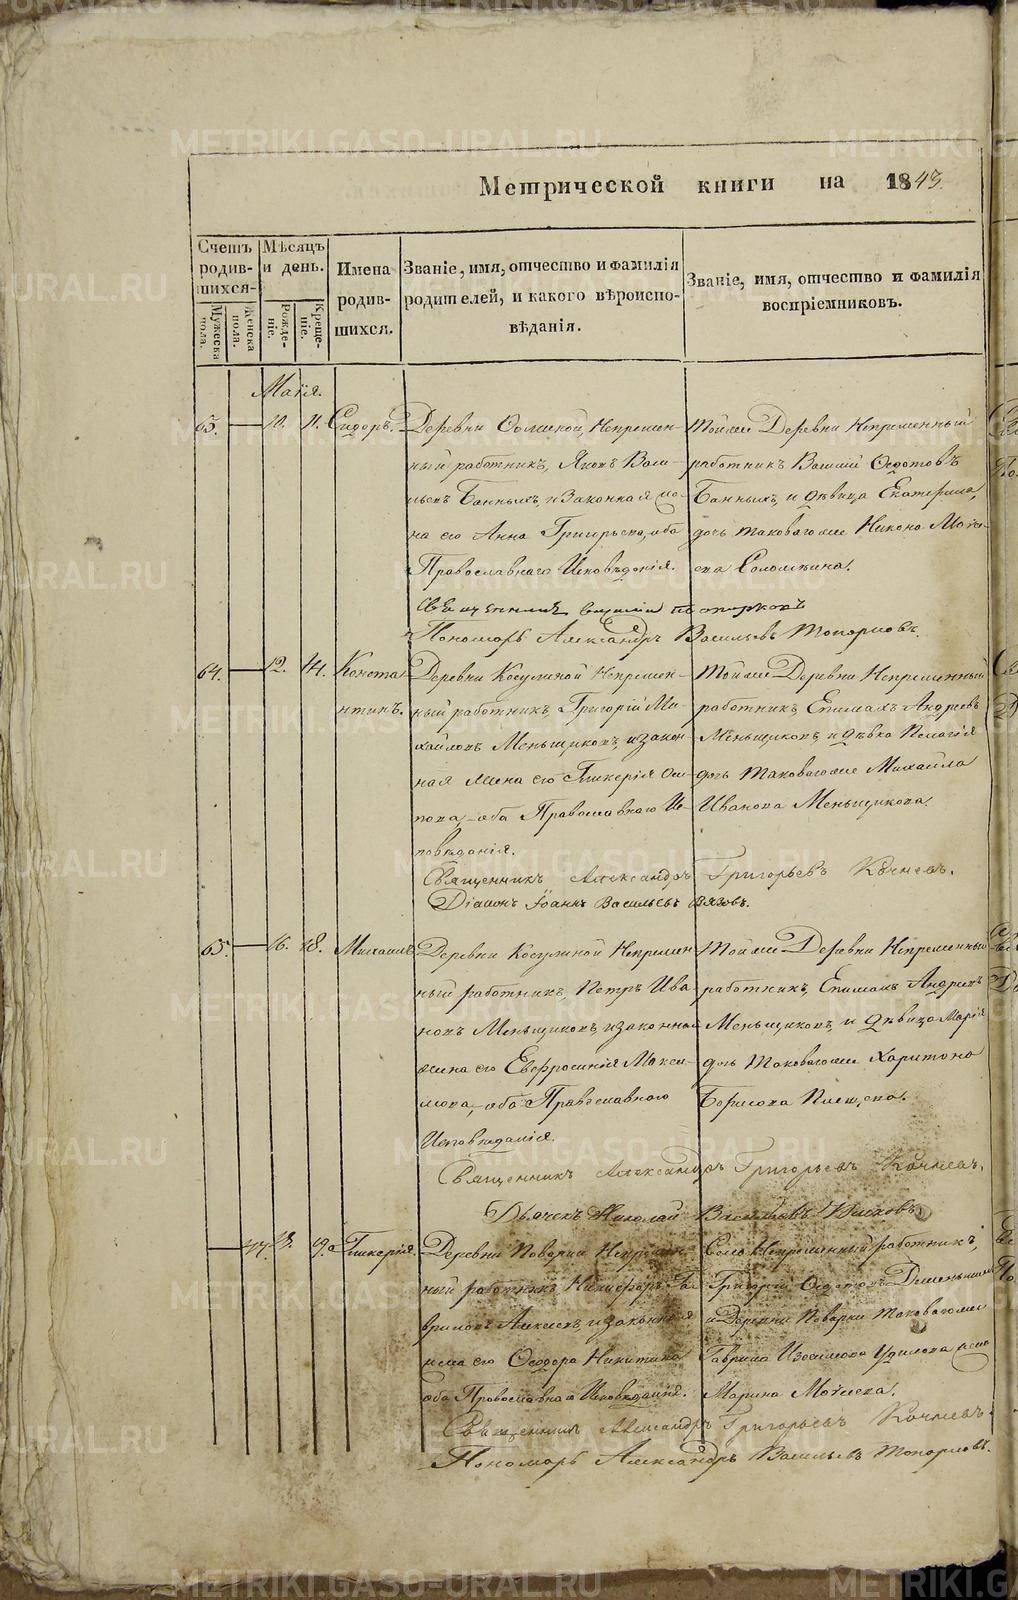 Метрической книги на 1843.
Счетъ родив- шихся.
Мѣсяцъ и день.
Имена родив- шихся.
Званіе, имя, отчество и фамилія родителей, и какого вѣроиспо- вѣданія.
Званіе, имя, отчество и фамилія воспріемниковъ.
Мужеска пола.
Женска пола.
Рожде- ніе.
Креще- ніе.
Маія.
63. 10. 11. Сидоръ.
Деревни Непремен-
ный работникъ, Яковъ Васи-
льевъ Банныхъ, и законная же-
на его Анна Григорьева, оба
Православнаго Исповѣданія.
Тойже Деревни Непременный
работникъ Василій Ѳедотовъ
Банныхъ, и дѣвица Екатерина,
дочь таковагоже Никона Моисе-
ева Соломеина.
Священникъ
Пономарь Александръ Васильевъ Топорковъ.
64. 12. 14. Констан-
нтинъ.
Деревни Косулиной Непремен-
ный работникъ, Григорій Ми-
хайловъ Меньщиковъ, и закон-
ная жена его Гликерія Оси-
пова, оба Православнаго Ис-
повѣданія.
Тойже Деревни Непременный
работникъ, Епимахъ Андреевъ
Меньщиковъ, и дѣвка Пелагія
дочь таковагоже Михаила
Иванова Меньщикова.
Священникъ Александръ Григорьевъ Кочневъ.
Діаконъ Іоаннъ Васильевъ Вязовъ.
65. 16. 18. Михаилъ
Деревни Косулиной Непремен
ный работникъ, Петръ Ива
новъ Меньщиковъ, и законная
жена его Евфросинія Макси-
мова, оба Православнаго
Исповѣданія.
Тойже Деревни Непременный
работникъ, Епимахъ Андреевъ
Меньщиковъ, и дѣвица Марія
дочь таковагоже Харитона
Борисова
Священникъ Александръ Григорьевъ Кочневъ.
Дьячекъ Николай Васильевъ
Гликерія.
Деревни Поварни Непремен-
ный работникъ Никифоръ Га-
вриловъ и законная
жена его Ѳеодора Никитина
оба Православнаго Исповѣданія.
Села Непременный работникъ,
Григорій Ѳедотовъ
и Деревни Поварни таковагоже
Гаврила жена
Марина Моисеева.
Священникъ Александръ Григорьевъ Кочневъ.
Пономарь Александръ Васильевъ Топорковъ.
METRIKI.GASO-URAL.RU